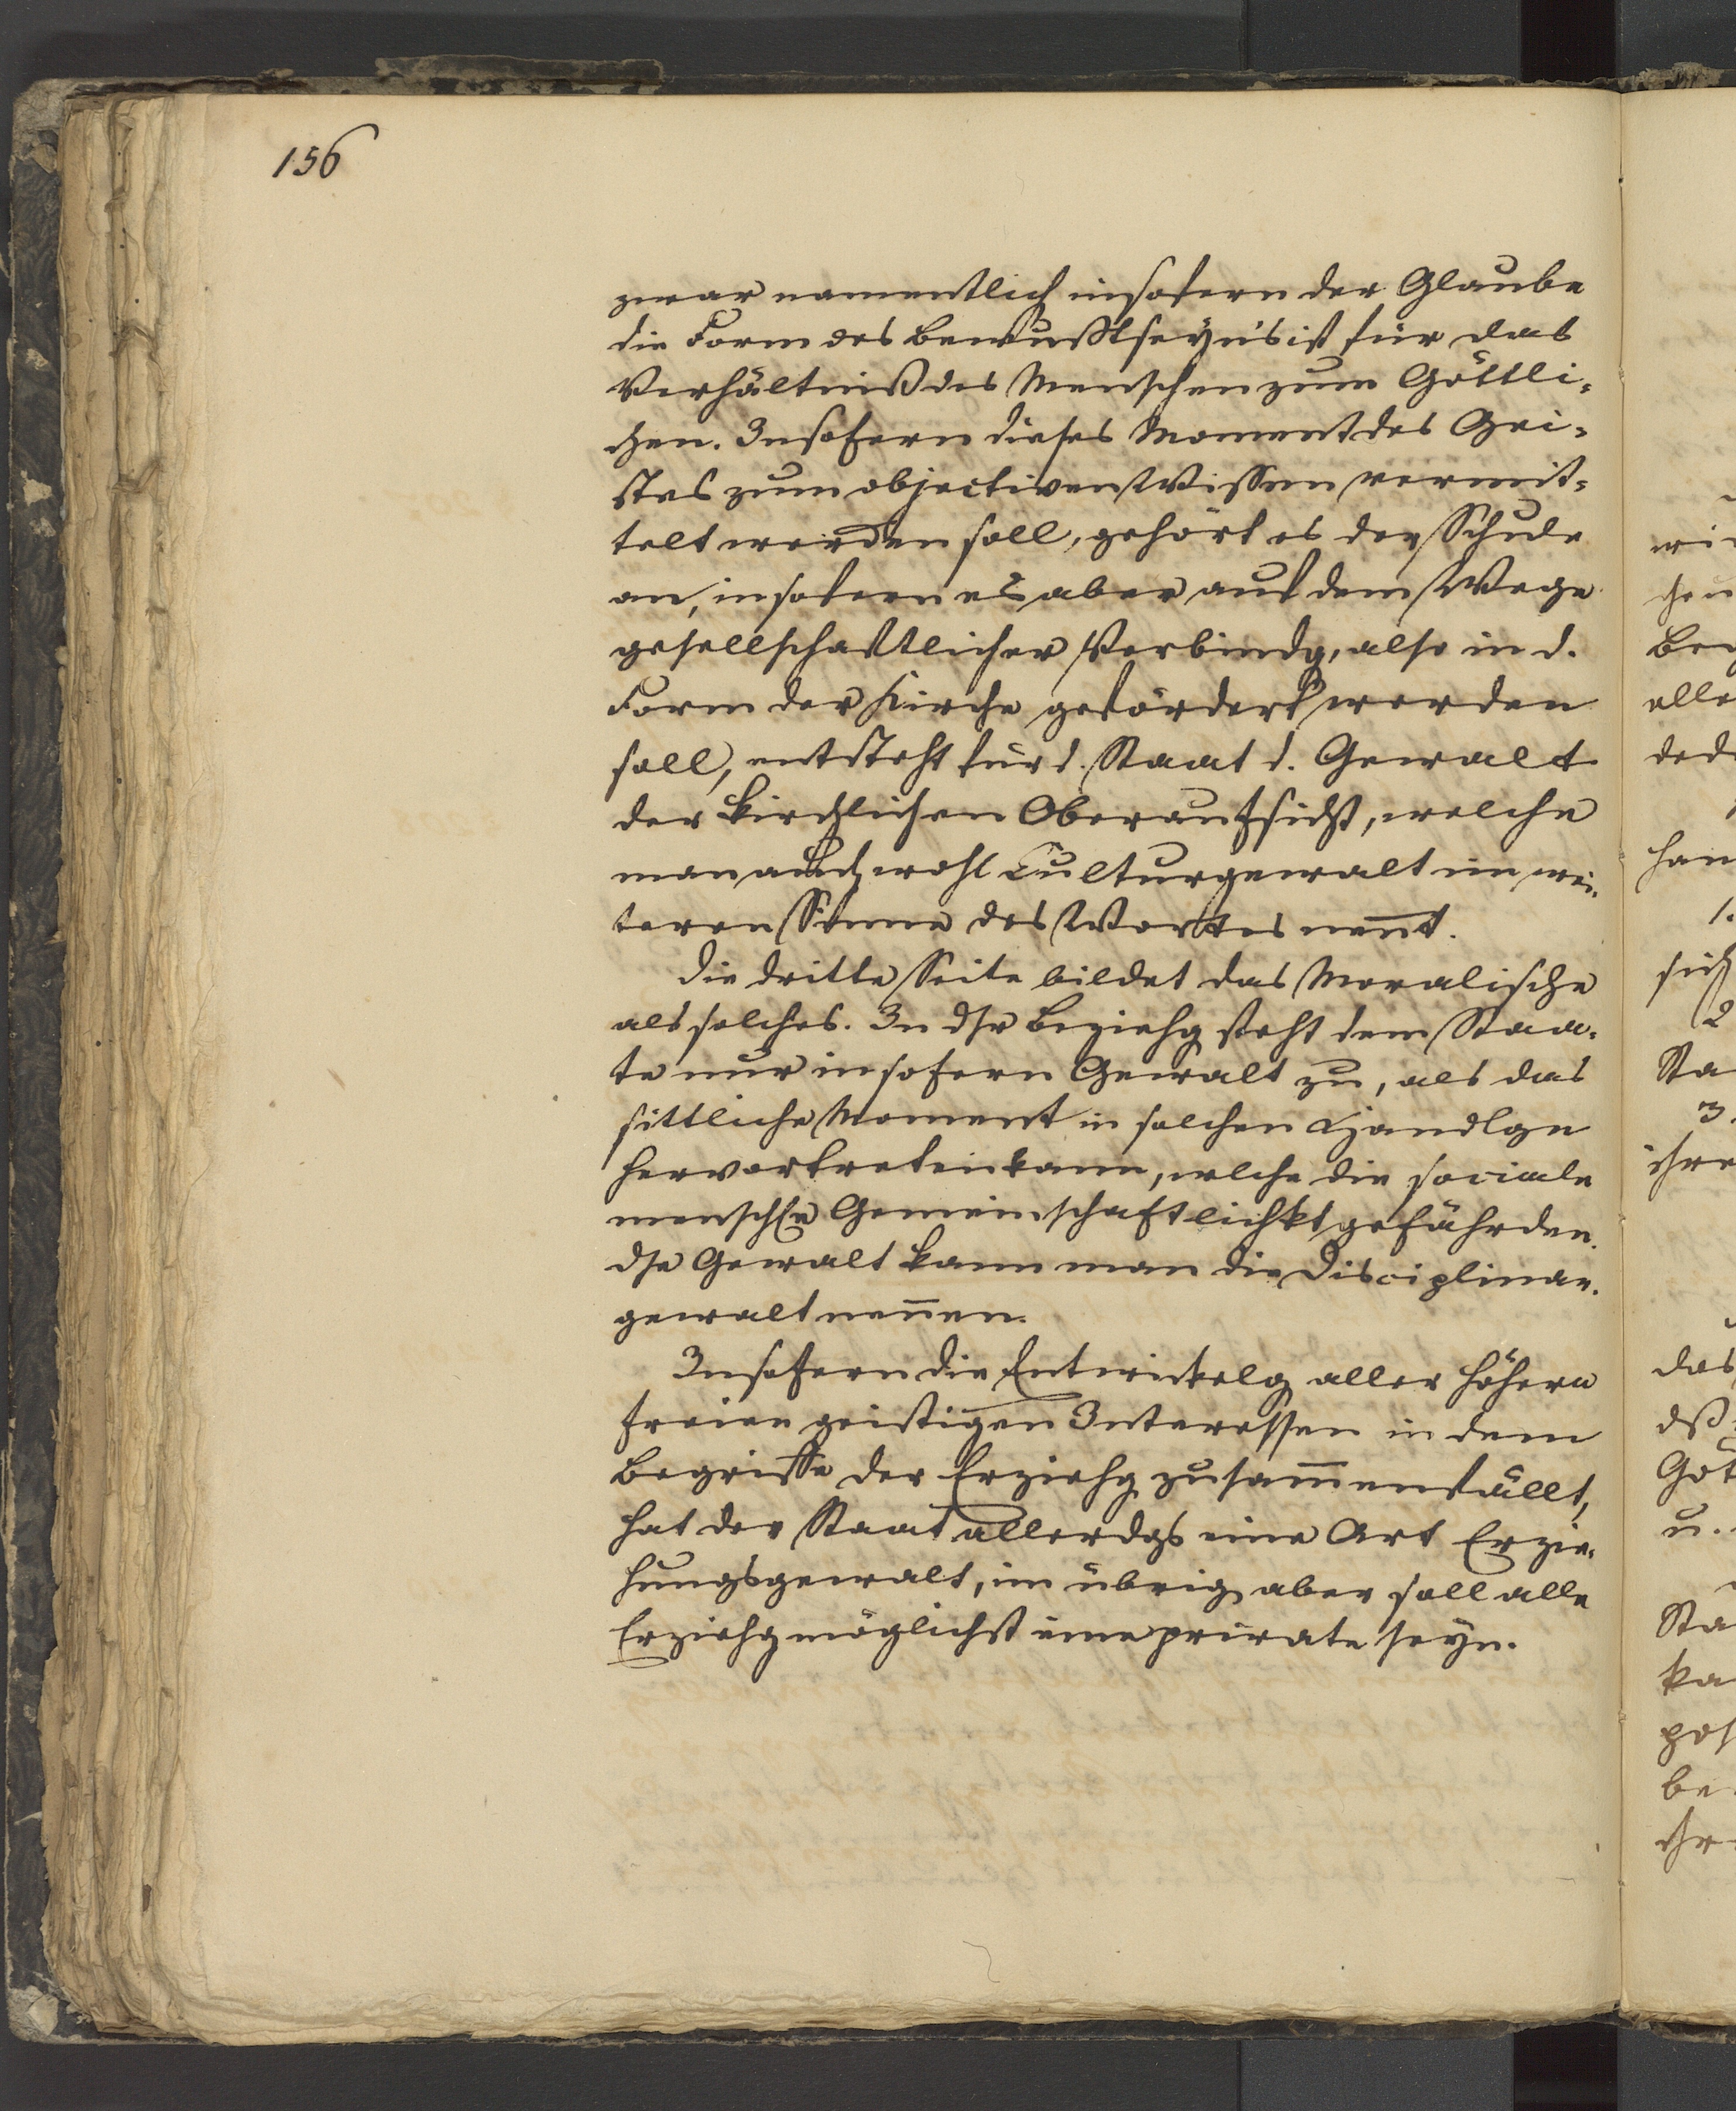 156
zwar namentlich insofern der Glaube
die Form des Bewußtseyns ist für das
Verhältniß des Menschen zum Göttli-
chen. Insofern dieses Moment des Gei-
stes zum objectiven Wissen vermit-
telt werden soll, gehört es der Schule
an, insofern es aber auf dem Wege
gesellschaftlicher Verbindg, also in d.
Form der Kirche gefördert werden
soll, entsteht für d. Staat d. Gewalt
der kirchlichen Oberaufsicht, welche
man auch wohl Culturgewalt im wei-
teren Sinne des Wortes nen̅t.
Die dritte Seite bildet das Moralische
als solches. In dsr Beziehg steht dem Staa-
te nur insofern Gewalt zu, als das
sittliche Moment in solchen Handlgn
hervortreten kann, welche die sociale
menschle Gemeinschaftlichkt gefährden.
Dse Gewalt kann man die Disciplinar-
gewalt nen̅en.
Insofern die Entwickelg aller höhern
freien geistigen Interessen in dem
Begriffe der Erziehg zusam̅enfällt,
hat der Staat allerdgs eine Art Erzie-
hungsgewalt, im übrig. aber soll alle
Erziehg möglichst eine private seyn.
wi
chen
Be
alle
ded
han
1.
sich
2
Sta
3.
ihre
das
dß
Göt
u.
Sta
ka
pos
be
ihr